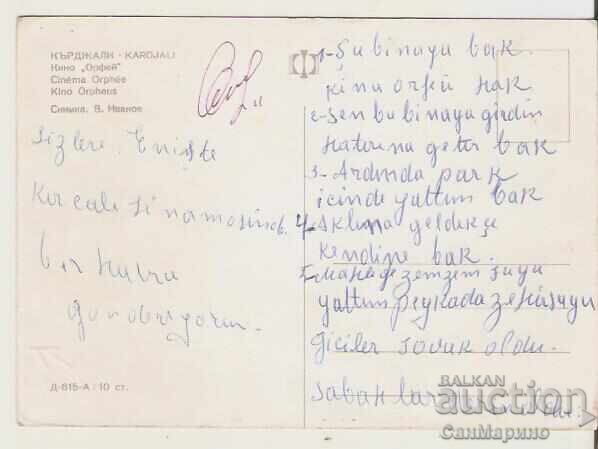 КЪРДЖАЛИ - KARDJALI
Кино „Орфей"
Cinéma Orphée
Kino Orpheus
Снимка, В. Иванов
sizlere Enişte
Kırcale sinamasindan
bir hatıra
gonderiyorum.
Д-815-А : 10 ст.
1- Su binaya bak
kina orfei hak
2- Sen bu binaya girdin
hatırına getir bak
3- Ardında park
icinde yattım bak
4- Aklına geldekçe
kendine bak.
5- zemzem suyu
yattım peykada
giciler sovuk oldu.
sabahlar
BALKAN
auction
СанМарино